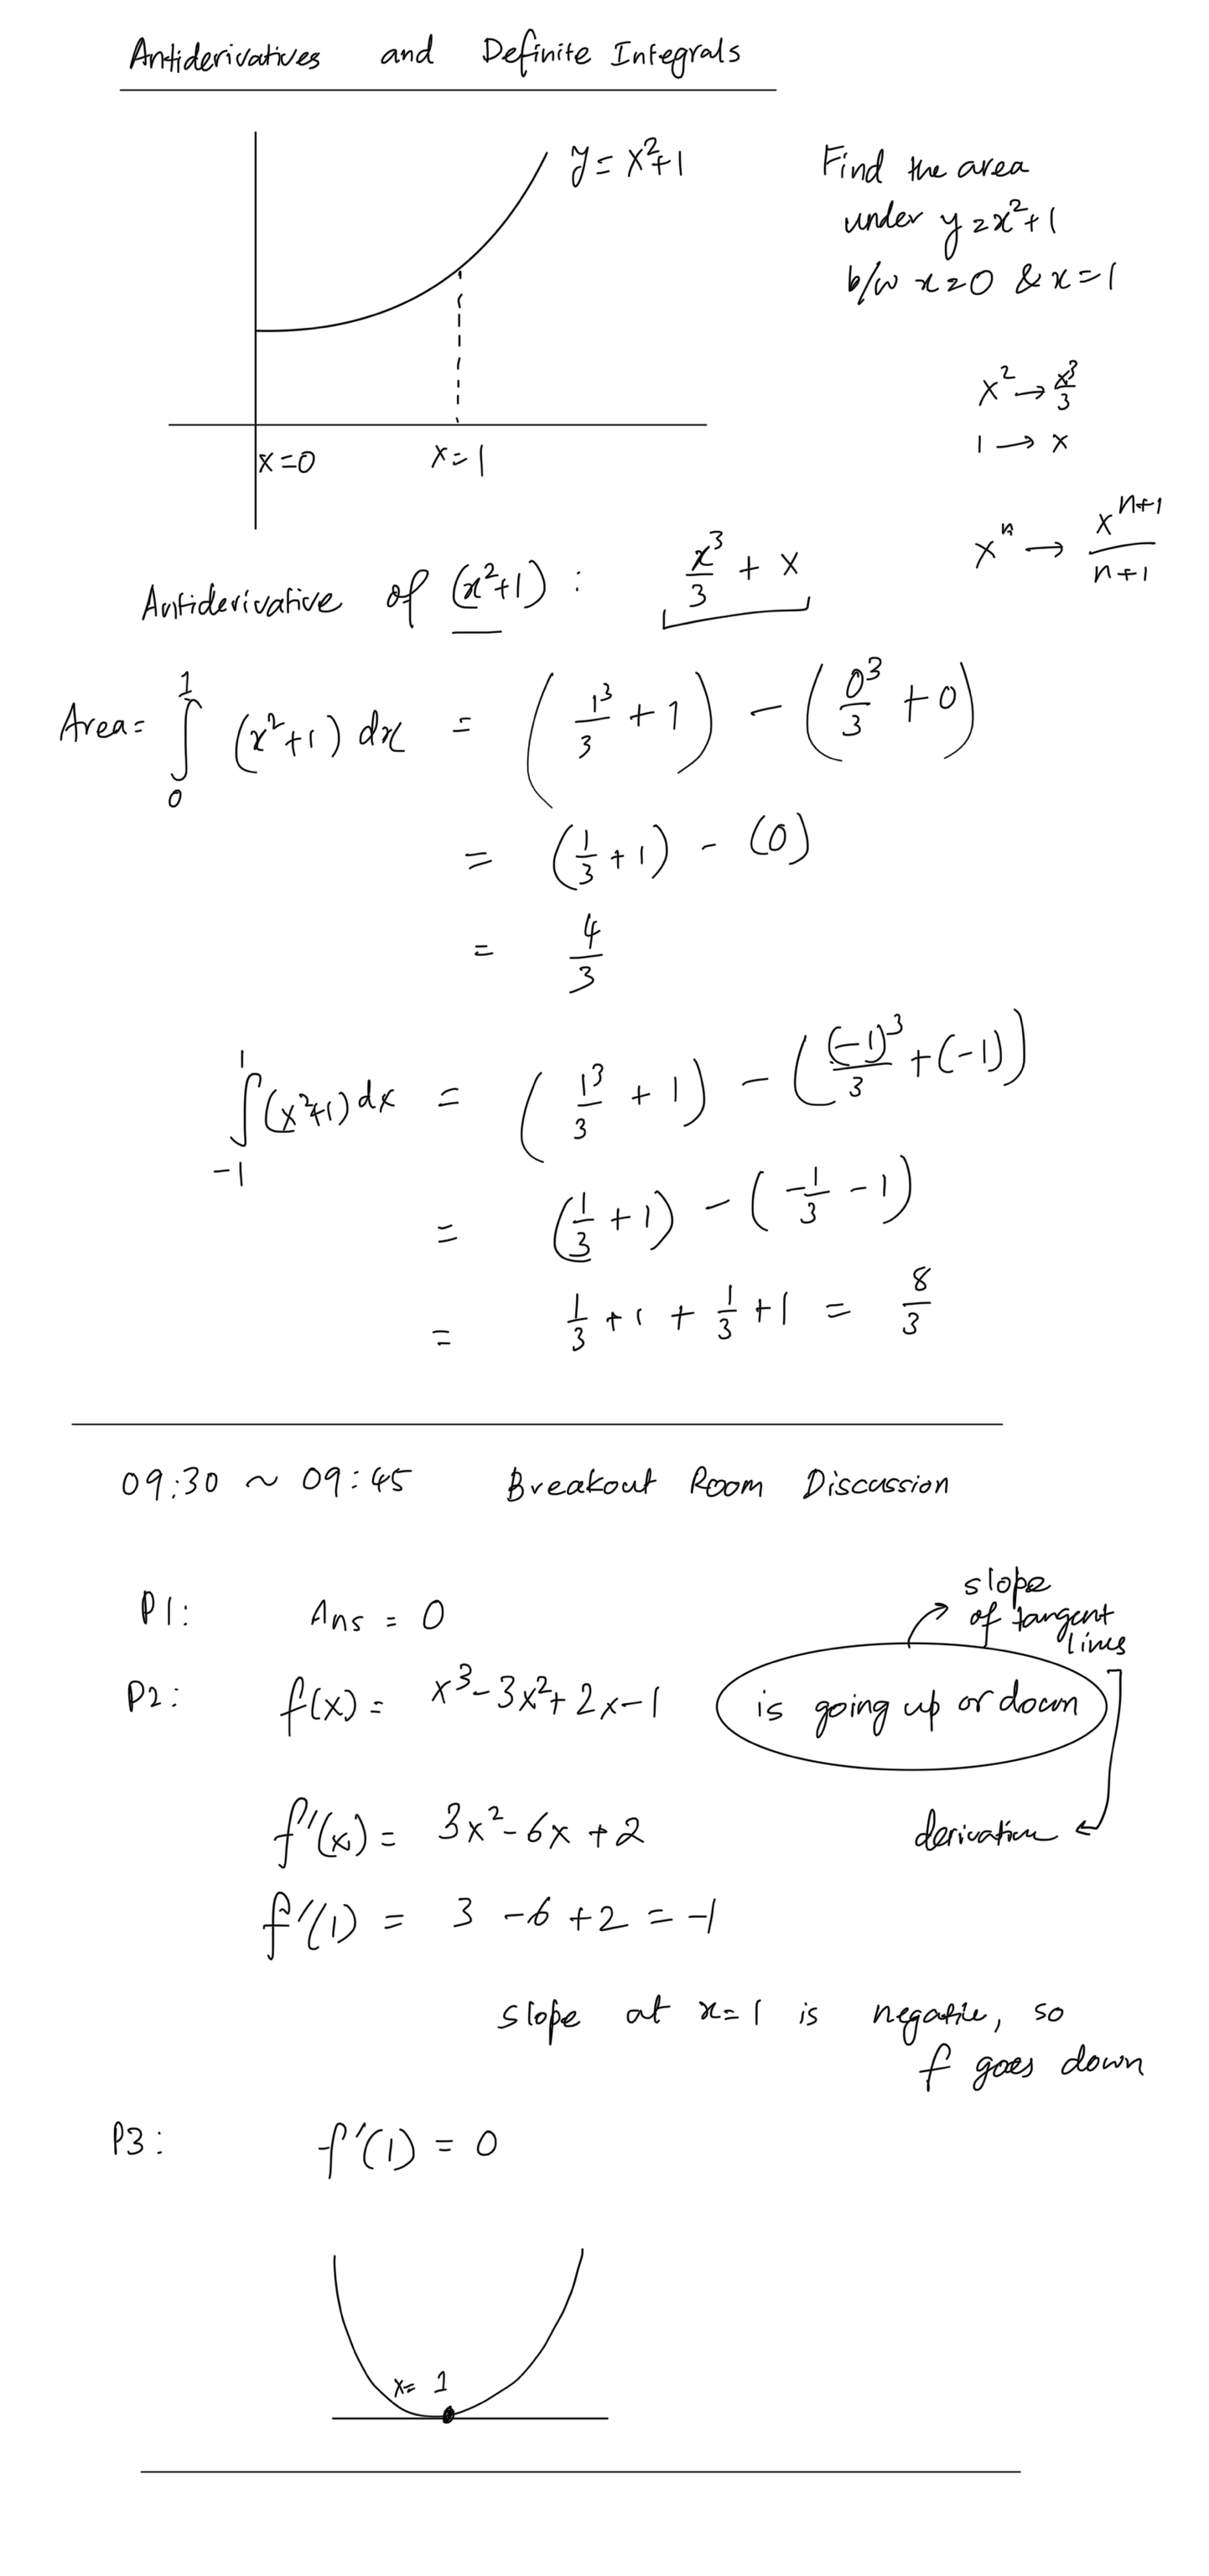 Antiderivatives and Definite Integrals
y = x²+1
Find the area
under y = x²+1
b/w x=0 & x=1
x² → x³/3
1 → x
xⁿ → xⁿ⁺¹/n+1
x=0
x=1
Antiderivative of (x²+1) : x³/3 + x
Area = ∫₀¹ (x²+1) dx = (1³/3 + 1) − (0³/3 + 0)
= (1/3 + 1) − (0)
= 4/3
∫₋₁¹ (x²+1) dx = (1³/3 + 1) − ((−1)³/3 + (−1))
= (1/3 + 1) − (−1/3 − 1)
= 1/3 + 1 + 1/3 + 1 = 8/3
09:30 ~ 09:45 Breakout Room Discussion
P1: Ans = 0
slope
of tangent
lines
P2: f(x) = x³−3x²+2x−1 is going up or down
f'(x) = 3x²−6x+2
derivative
f'(1) = 3 −6 +2 = −1
slope at x=1 is negative, so
f goes down
P3: f'(1) = 0
x= 1